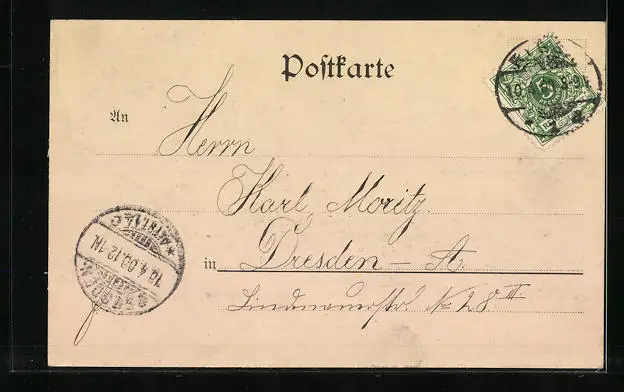 Postkarte
An
Herrn
Karl Moritz.
in Dresden – A.
Lindenauerstr. No 28 III
10.4.00.12-1N.